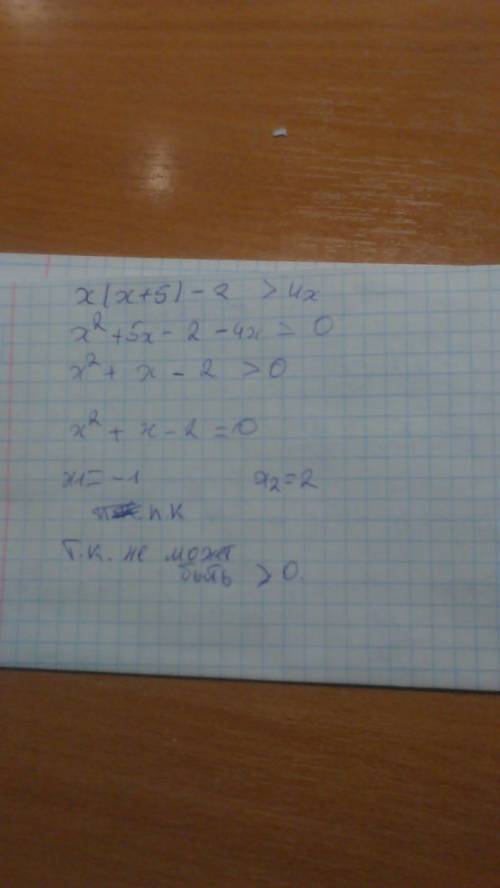 x(x+5)-2 >4x
x²+5x-2-4x > 0
x²+ x - 2 >0
x²+ x-2=0
x1=-1 x₂=2
п.к
т.к. не может
быть >0.